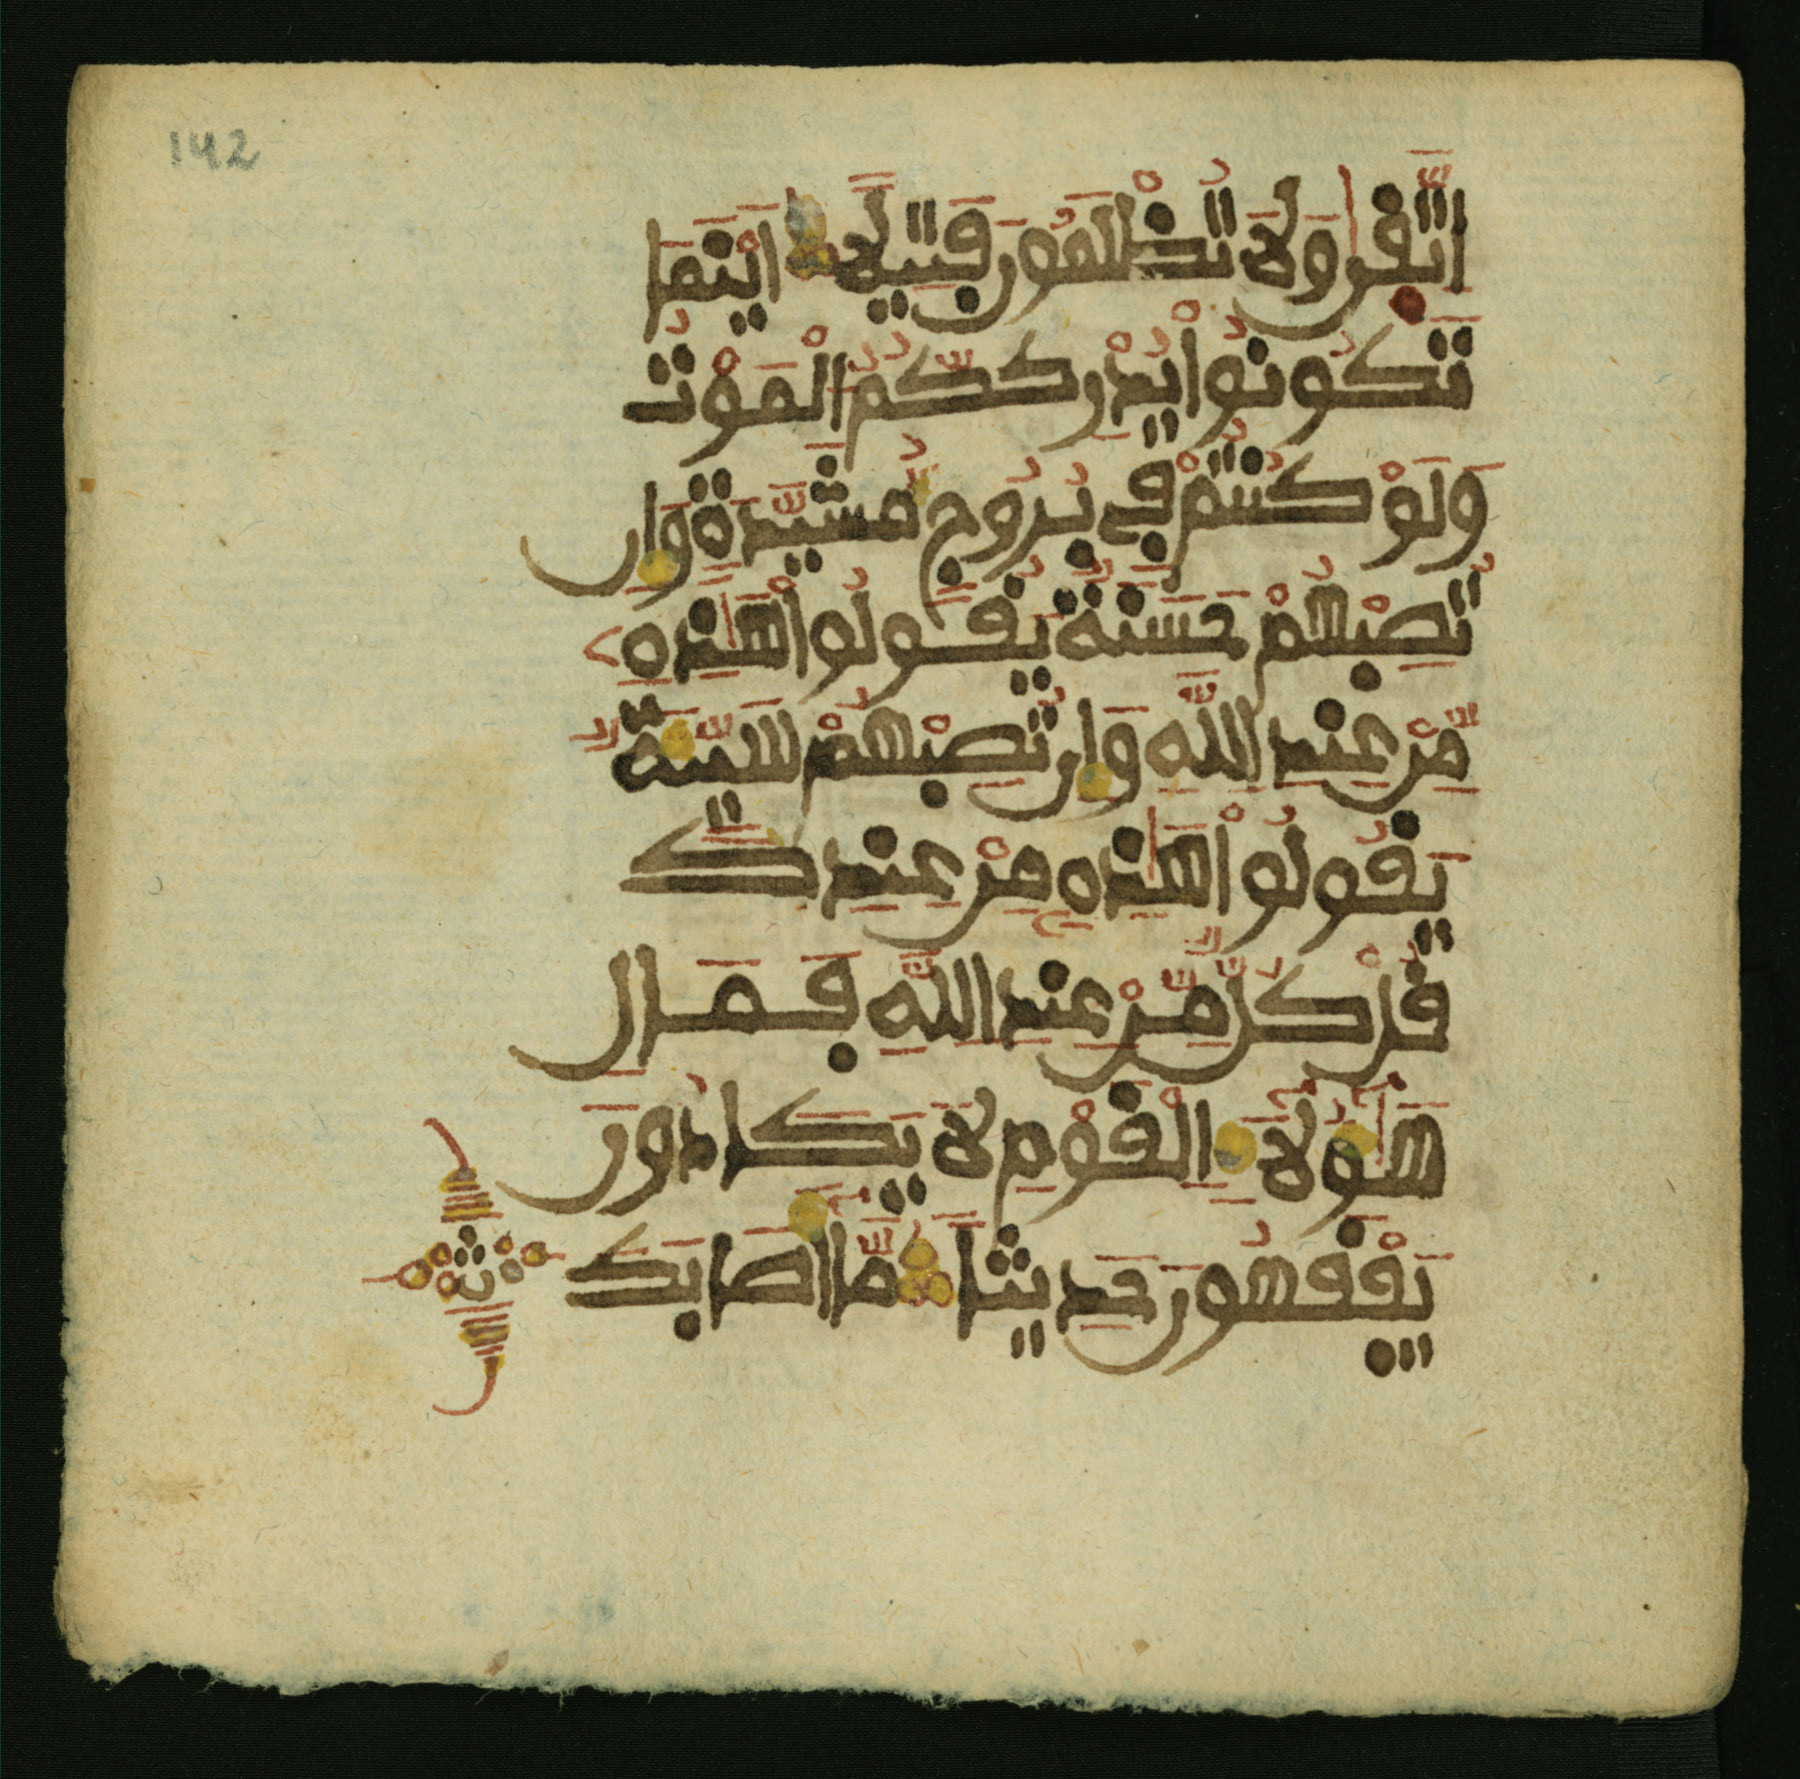 142
اتَّقى وَلَا تُظْلَمُونَ فَتِيلًا اَيْنَمَا
تَكُونُوا يُدْرِككُّمُ الْمَوْتُ
وَلَوْ كُنتُمْ فِي بُرُوجٍ مُّشَيَّدَةٍ وَإِن
تُصِبْهُمْ حَسَنَةٌ يَقُولُوا هَٰذِهِ
مِنْ عِندِ اللَّهِ وَإِن تُصِبْهُمْ سَيِّئَةٌ
يَقُولُوا هَٰذِهِ مِنْ عِندِكَ
قُلْ كُلٌّ مِّنْ عِندِ اللَّهِ فَمَالِ
هَٰؤُلَاءِ الْقَوْمِ لَا يَكَادُونَ
يَفْقَهُونَ حَدِيثًا مَّا أَصَابَكَ